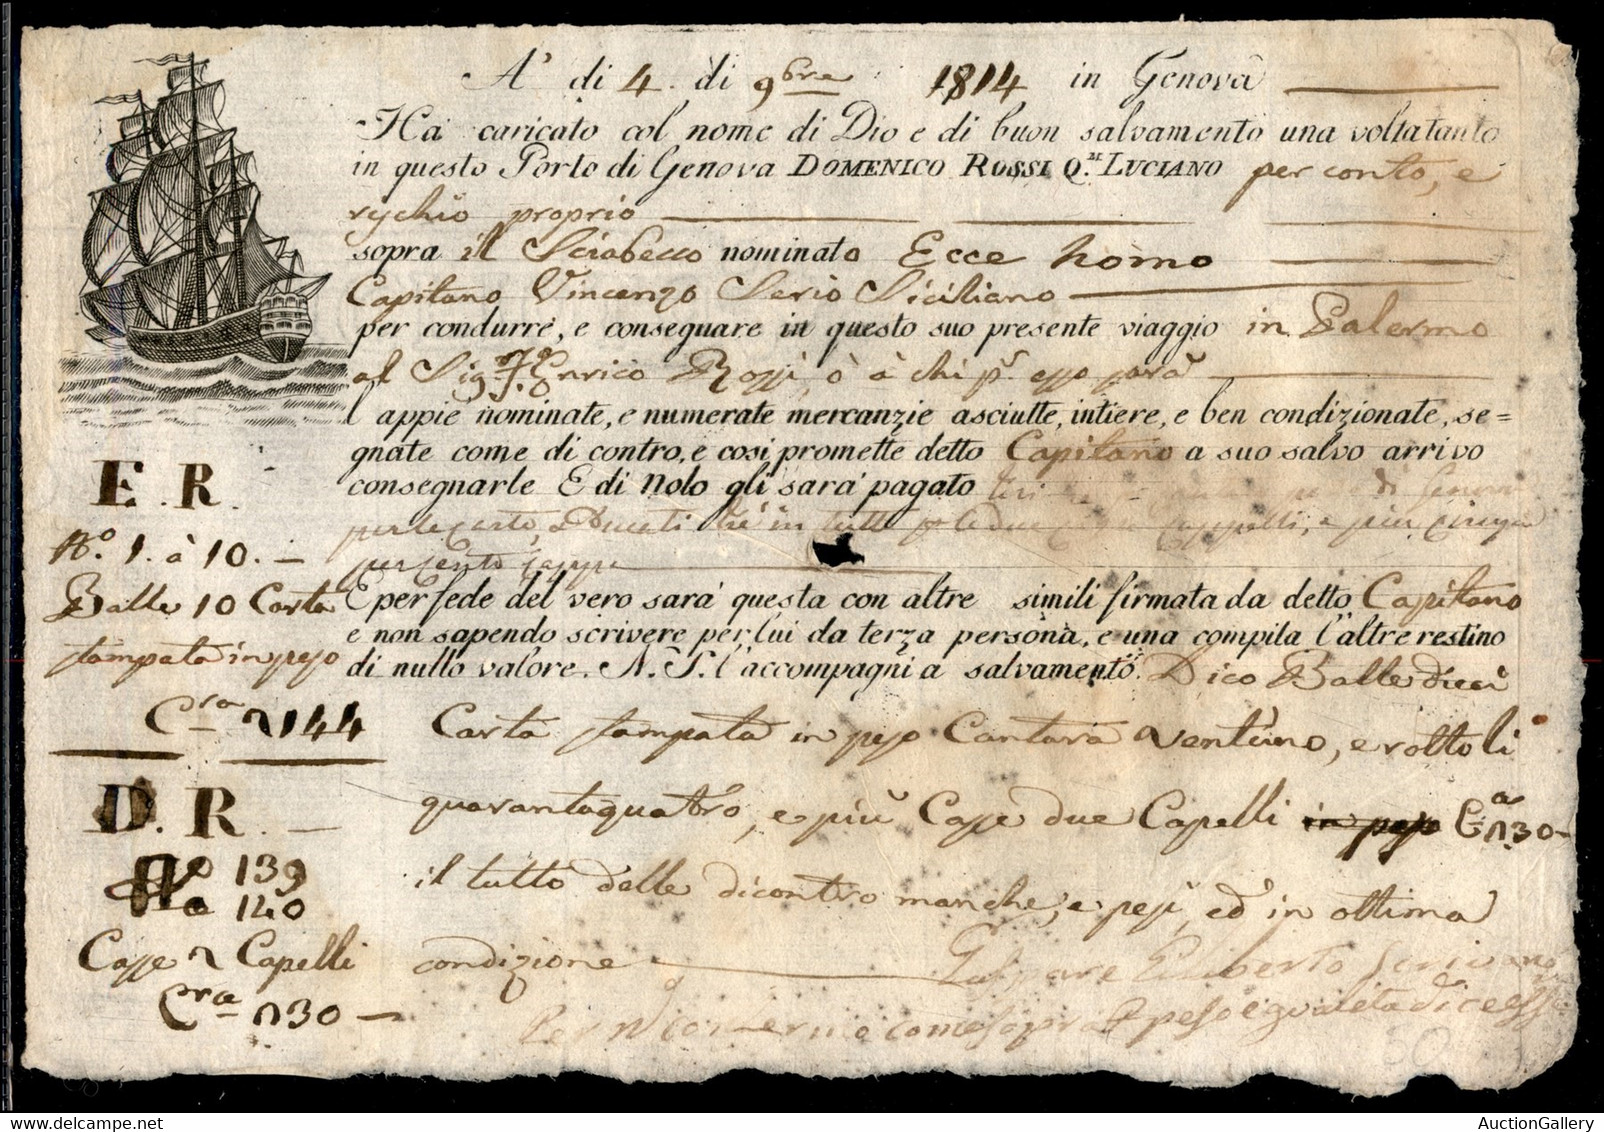 A' di 4. di 9bre 1814 in Genova
Ha caricato col nome di Dio e di buon salvamento una volta tanto
in questo Porto di Genova DOMENICO ROSSI Q.M LUCIANO per conto, e
rychio proprio
sopra il Sciabecco nominato Ecce homo
Capitano Vincenzo Serio Siciliano
per condurre, e conseguare in questo suo presente viaggio in Palermo
al Sig.r Enrico Rossi, ò à chi p. esso sarà
l appie nominate, e numerate mercanzie asciutte, intiere, e ben condizionate, se=
gnate come di contro, e cosi promette detto Capitano a suo salvo arrivo
consegnarle E di nolo gli sara' pagato
di Genova
E per fede del vero sara' questa con altre simili firmata da detto Capitano
e non sapendo scrivere per lui da terza persona, e una compita l'altre restino
di nullo valore. N. S. l'accompagni a salvamento. Dico Balle dieci
Carta stampata in peso Cantara ventuno, e rottoli
quarantaquatro, e più Casse due Capelli in peso C.a n 30
il tutto delle dicontro marche, e pesi, ed in ottima
condizione
Gaspare Scrivano
come sopra
E. R.
No. 1. à 10.
Balle 10 Carta
stampata in peso
C.ra 2144
D. R.
No 139
a 140
Casse 2 Capelli
C.ra n 30
AuctionGallery